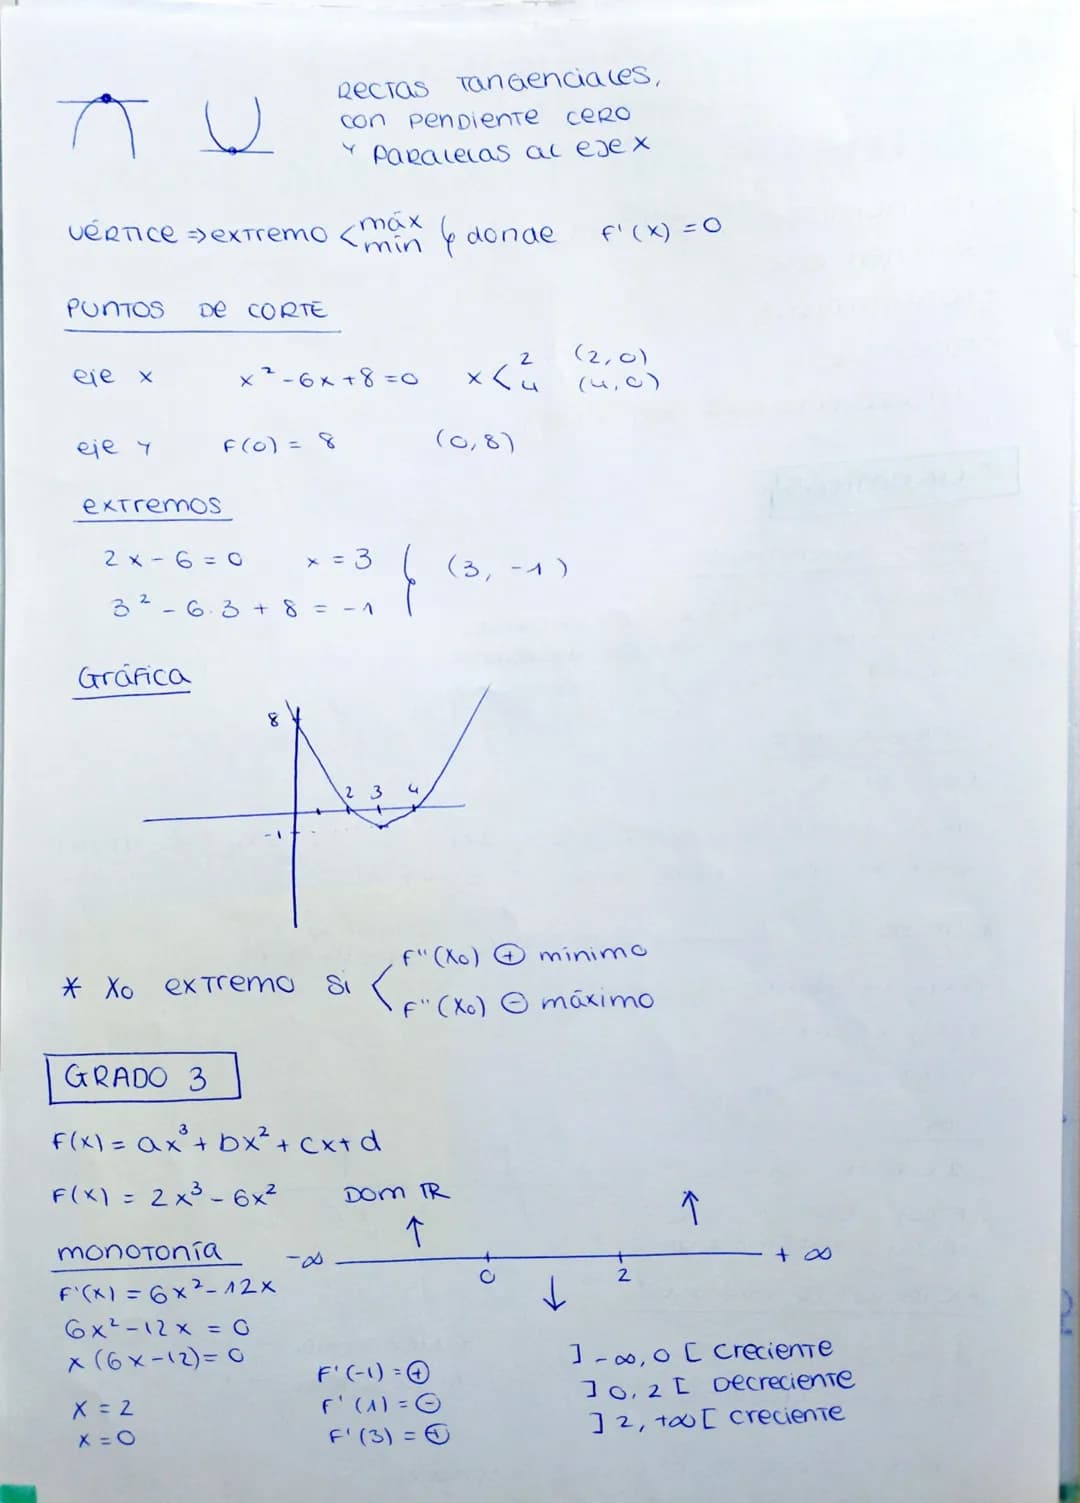 Rectas tangenciales,
con pendiente cero
y paralelas al eje x
vértice ⇒ extremo < máx
mín
y donde f'(x) = 0
PUNTOS DE CORTE
eje x x² - 6x + 8 = 0 x < 2 (2,0)
4 (4,0)
eje y F(0) = 8 (0,8)
extremos
2x - 6 = 0 x = 3 } (3, -1)
3² - 6·3 + 8 = -1
Gráfica
8
2 3 4
-1
* X₀ extremo si < F''(X₀) ⊕ mínimo
F''(X₀) ⊖ máximo
GRADO 3
F(x) = ax³ + bx² + cx + d
F(x) = 2x³ - 6x² Dom ℝ
↑ ↑
monotonía -∞ +∞
0 2
↓
F'(x) = 6x² - 12x
6x² - 12x = 0
x(6x - 12) = 0
x = 2
x = 0
F'(-1) = ⊕
F'(1) = ⊖
F'(3) = ⊕
]-∞, 0[ creciente
]0, 2[ Decreciente
]2, +∞[ creciente